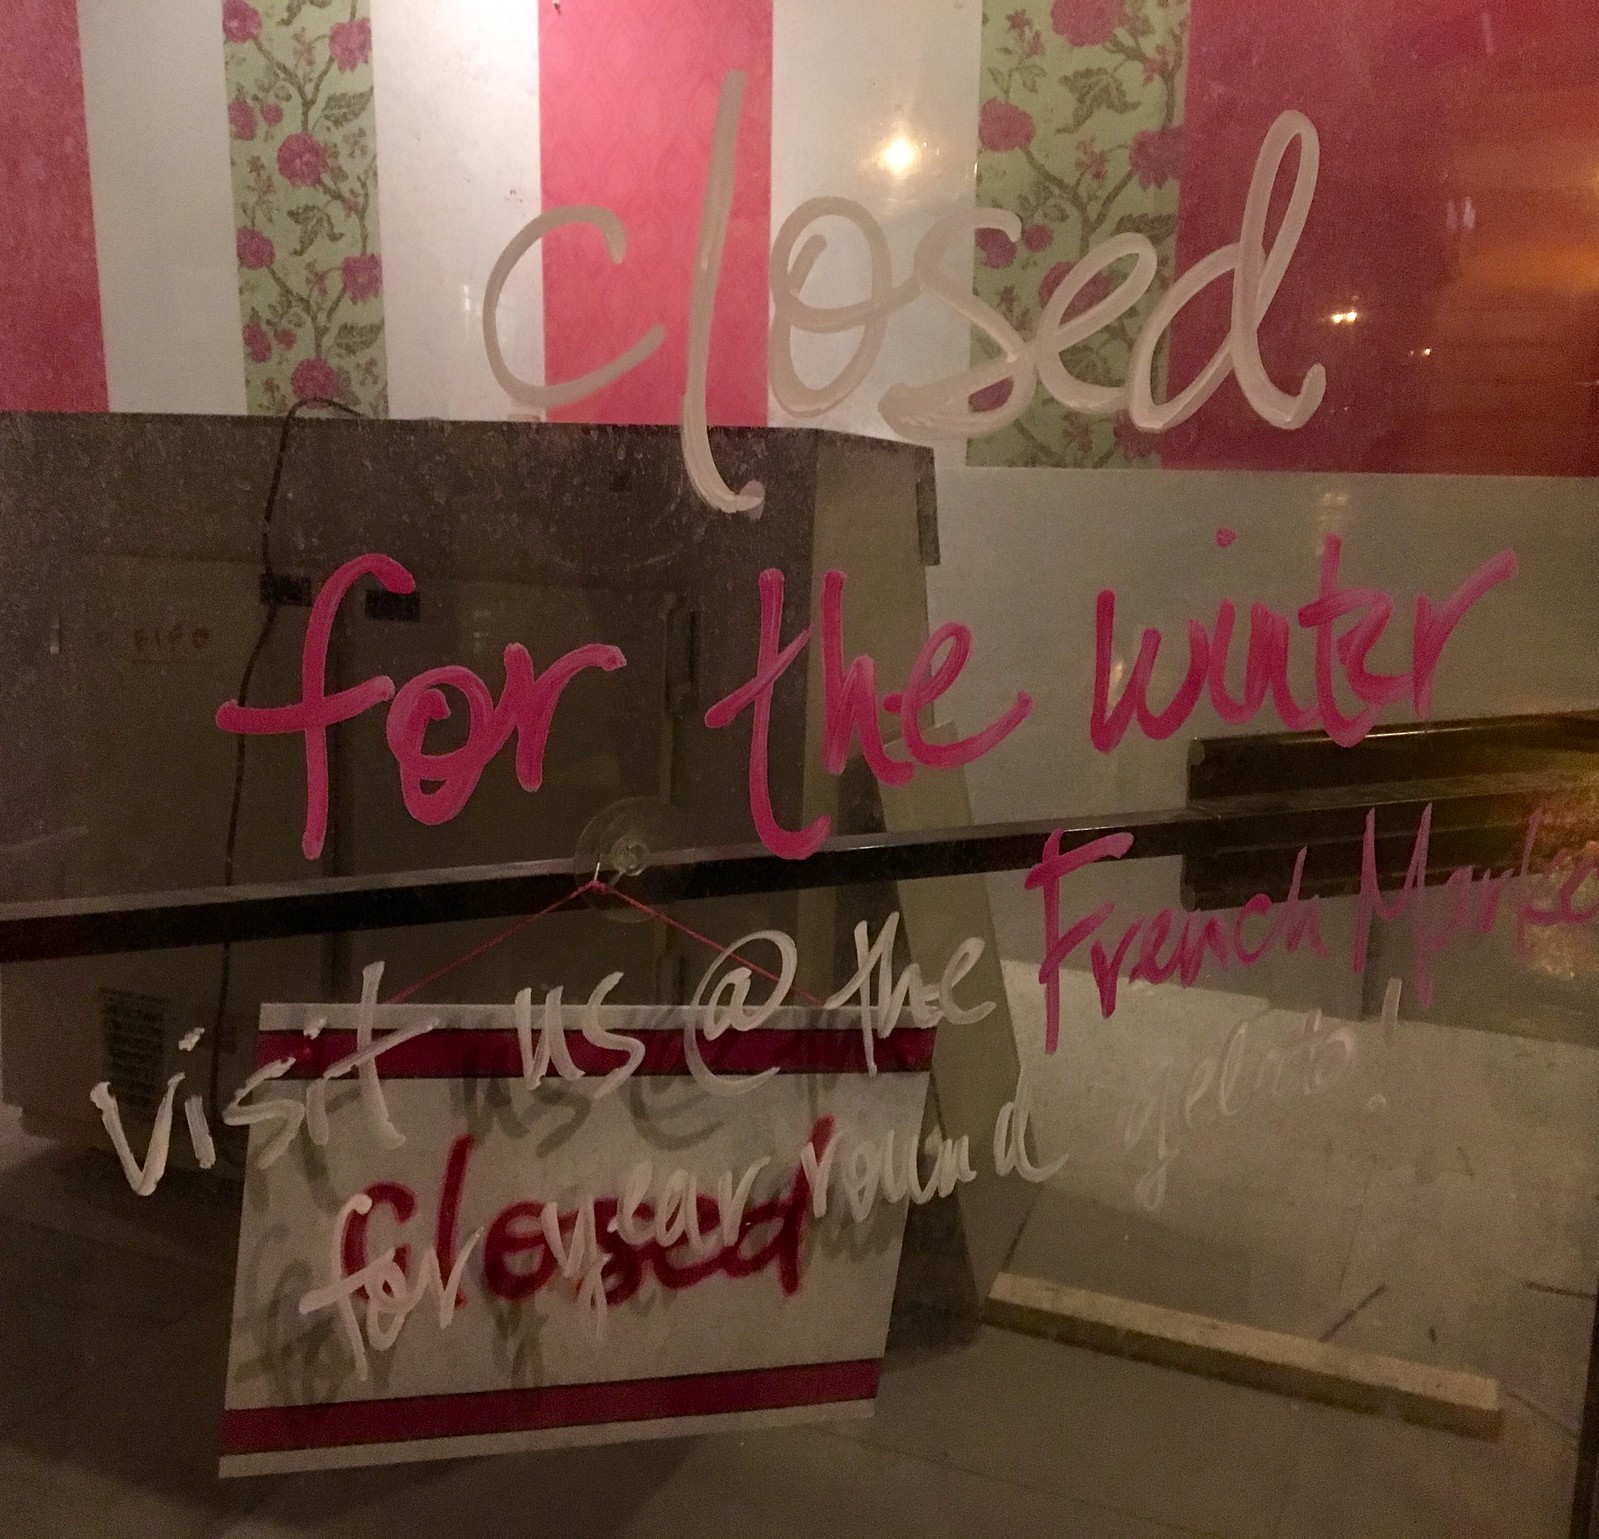 closed
for the winter
visit us @ the French Marke
for year round gelato!
closed
FIFO